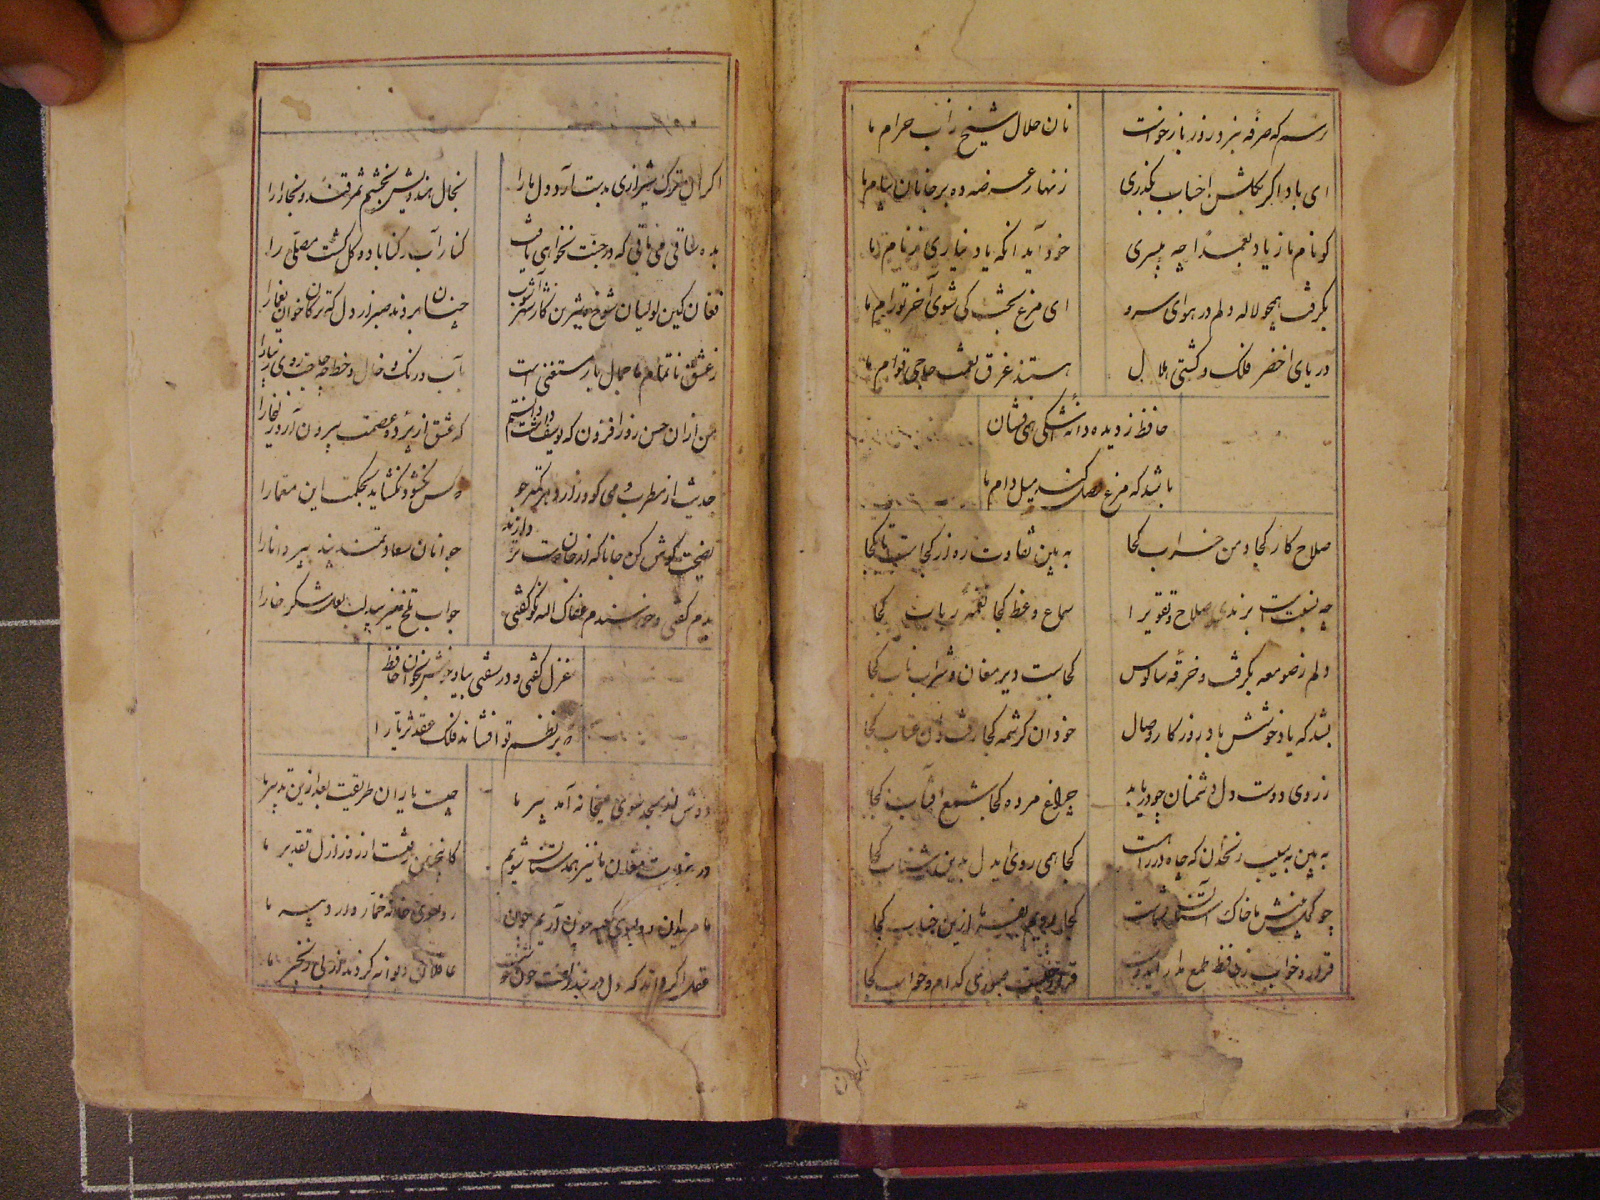 ترسم که صرفهٔ نبرد روز بازخواست نان حلال شیخ ز آب حرام ما
ای باد اگر بگلشن احباب بگذری زنهار عرضه ده بر جانان پیام ما
کو نام ما ز یاد بعمدا چه میبری خود آید آنکه یاد نیاری ز نام ما
بگرفت همچو لاله دلم در هوای سرو ای مرغ بخت کی شوی آخر تو رام ما
دریای اخضر فلک و کشتی هلال هستند غرق نعمت حاجی قوام ما
حافظ ز دیده دانه اشکی همی فشان
باشد که مرغ وصل کند میل دام ما
صلاح کار کجا و من خراب کجا به بین تفاوت ره از کجاست تا بکجا
چه نسبت است برندی صلاح و تقوی را سماع وعظ کجا نغمهٔ رباب کجا
دلم ز صومعه بگرفت و خرقه سالوس کجاست دیر مغان و شراب ناب کجا
بشد که یاد خوشش باد روزگار وصال خود آن کرشمه کجا رفت و آن عتاب کجا
ز روی دوست دل دشمنان چه دریابد چراغ مرده کجا شمع آفتاب کجا
به بین به سیب زنخدان که چاه در راه است کجا همی روی ای دل بدین شتاب کجا
چو کحل بینش ما خاک آستان شماست کجا رویم بفرما ازین جناب کجا
قرار و خواب ز حافظ طمع مدار ای دوست قرار چیست صبوری کدام و خواب کجا
اگر آن ترک شیرازی بدست آرد دل ما را بخال هندویش بخشم سمرقند و بخارا را
بده ساقی می باقی که در جنت نخواهی یافت کنار آب رکناباد و گل گشت مصلی را
فغان کین لولیان شوخ شیرین کار شهر آشوب چنان بردند صبر از دل که ترکان خوان یغما را
ز عشق ناتمام ما جمال یار مستغنی است بآب و رنگ و خال و خط چه حاجت روی زیبا را
من از آن حسن روز افزون که یوسف داشت دانستم که عشق از پرده عصمت برون آرد زلیخا را
حدیث از مطرب و می گو و راز دهر کمتر جو که کس نگشود و نگشاید بحکمت این معما را
نصیحت گوش کن جانا که از جان دوست تر دارند جوانان سعادتمند پند پیر دانا را
بدم گفتی و خرسندم عفاک الله نکو گفتی جواب تلخ میزیبد لب لعل شکر خا را
غزل گفتی و در سفتی بیا و خوش بخوان حافظ
که بر نظم تو افشاند فلک عقد ثریا را
دوش از مسجد سوی میخانه آمد پیر ما چیست یاران طریقت بعد ازین تدبیر ما
در خرابات مغان ما نیز همدستان شویم کاینچنین رفتست از روز ازل تقدیر ما
ما مریدان رو بسوی کعبه چون آریم چون رو بسوی خانه خمار دارد پیر ما
عقل اگر داند که دل در بند زلفت چون خوشست عاقلان دیوانه گردند از پی زنجیر ما